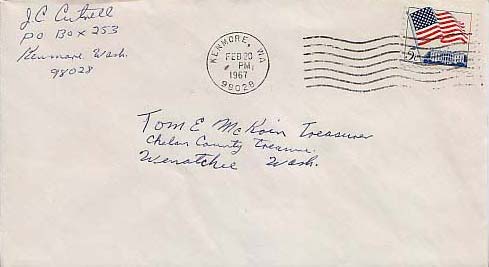 J.C. Cutrell
PO Box 253
Kenmore Wash.
98028
KENMORE, WA
FEB 20
PM
1967
98028
5¢
Tom E McKoin Treasurer
Chelan County Treasurer
Wenatchee Wash.